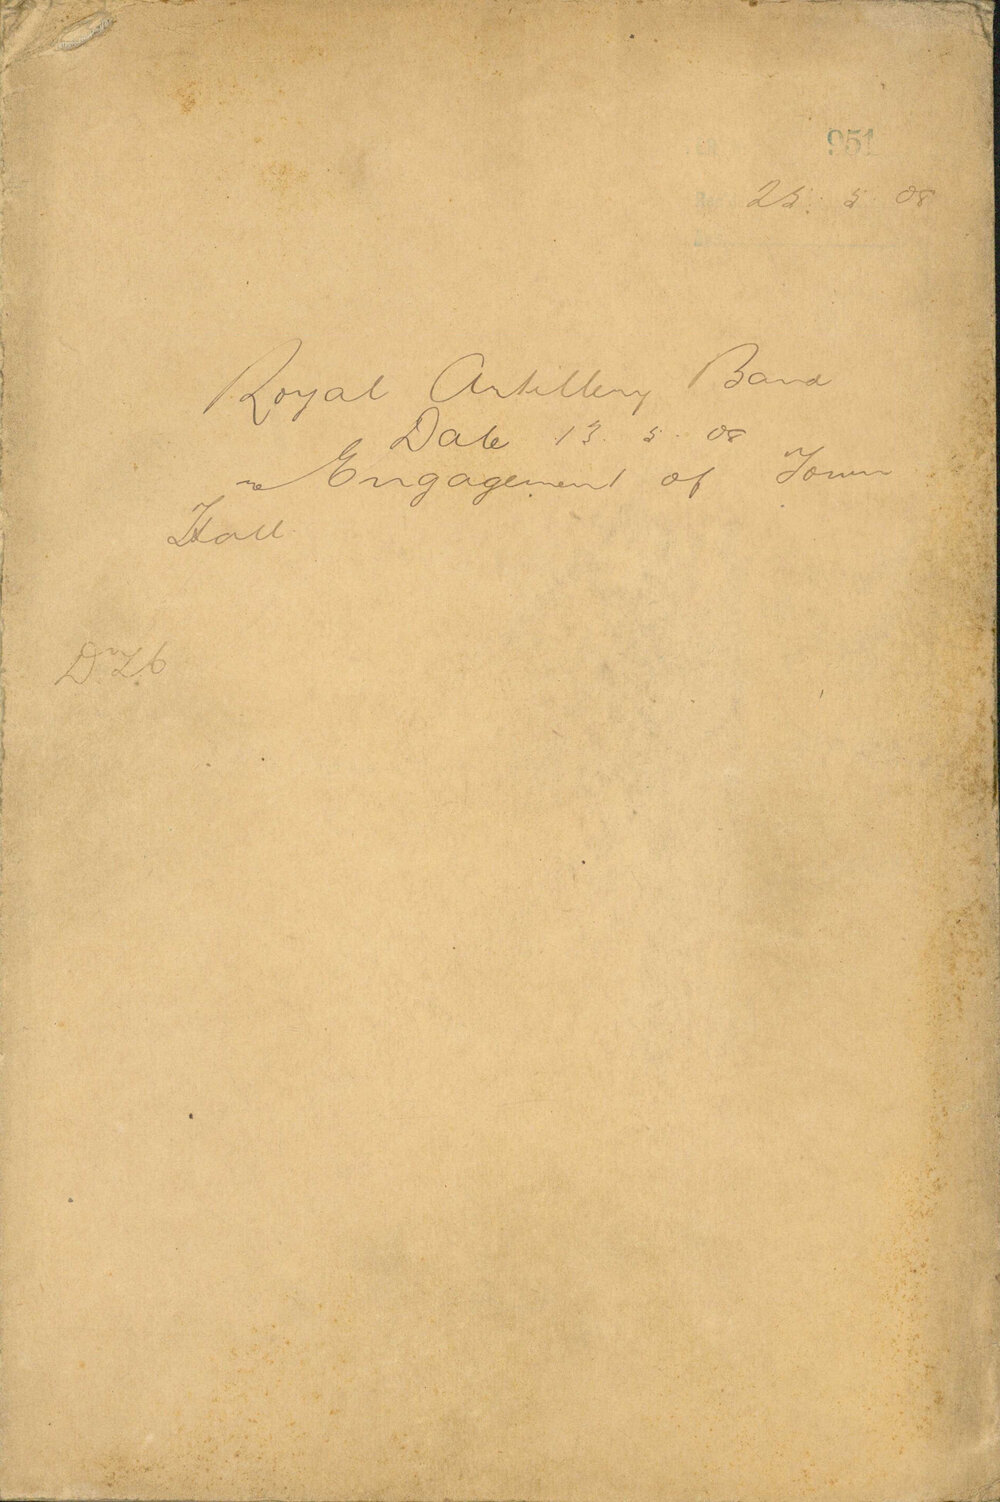 951
25. 5 08
Royal Artillery Band
Date 13. 5. 08
re Engagement of Town
Hall